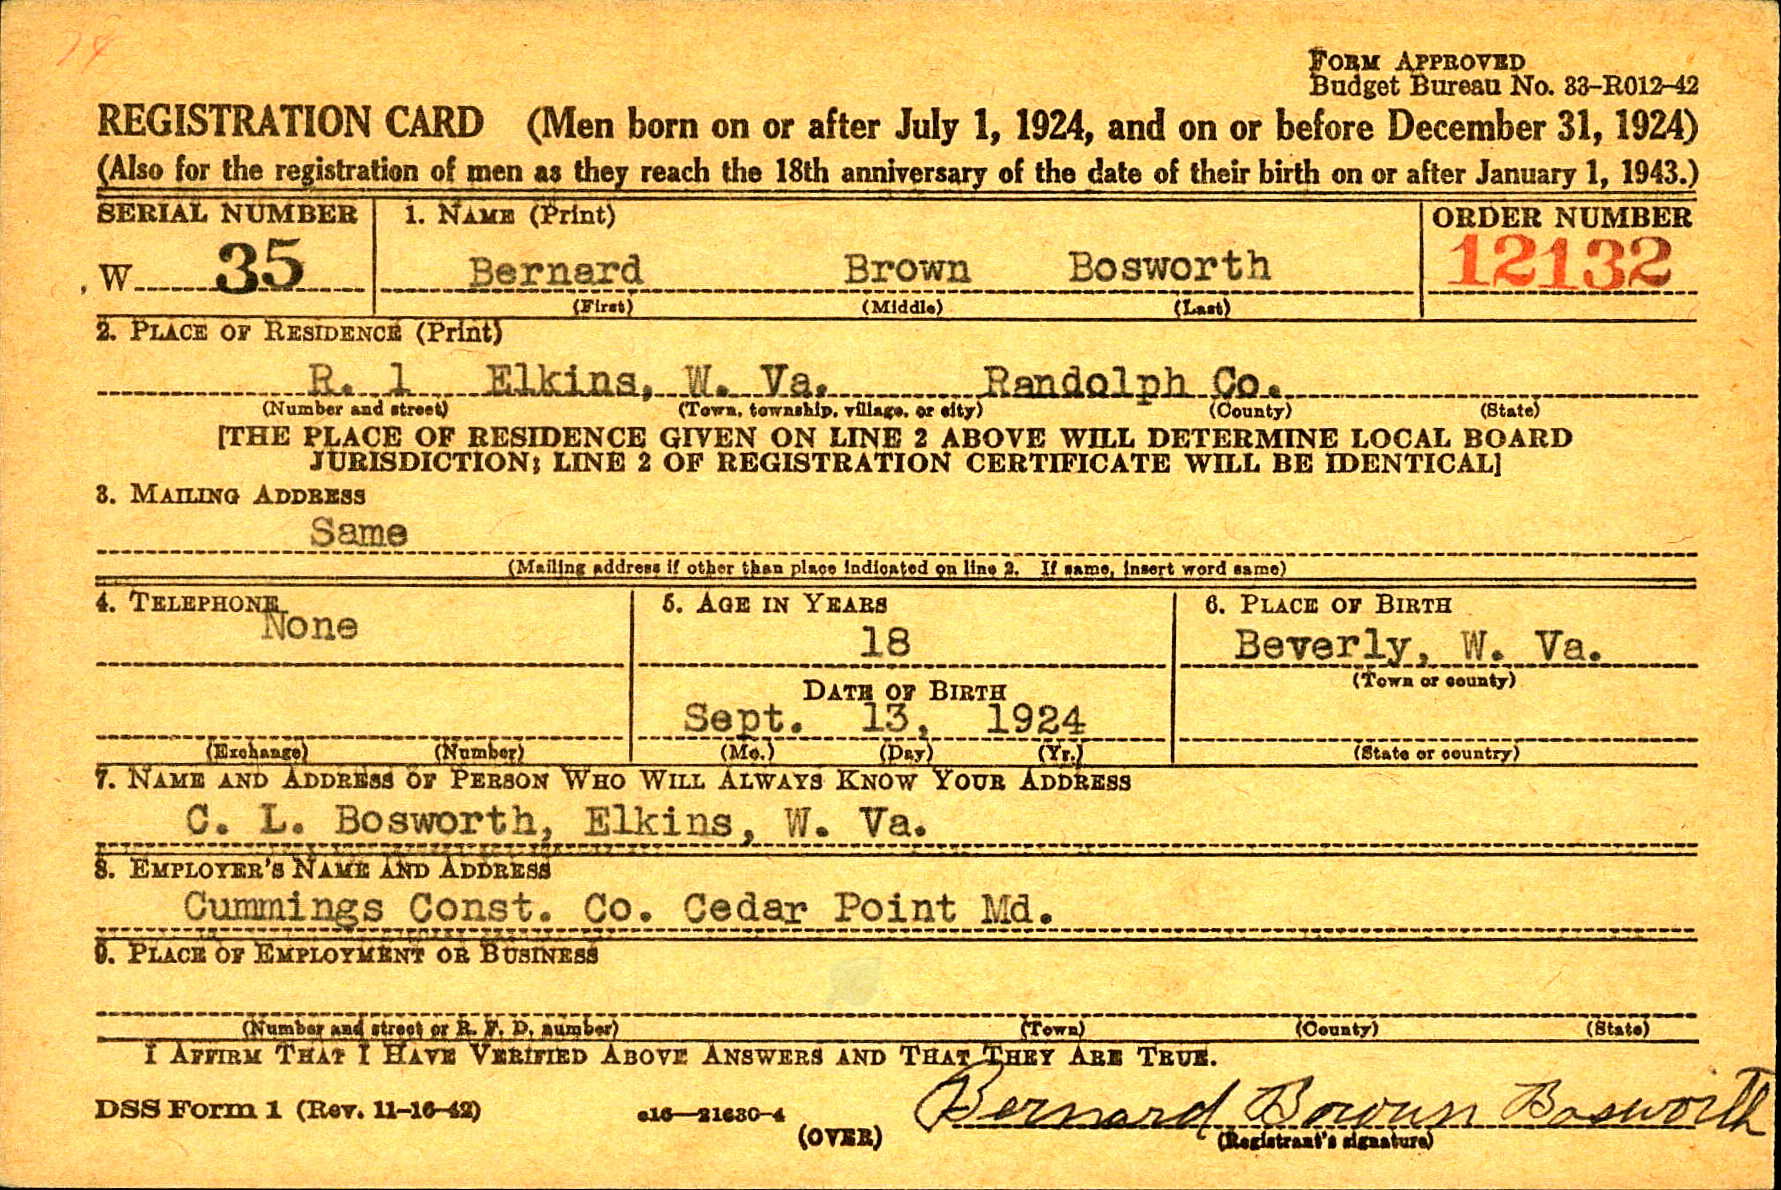 74
FORM APPROVED
Budget Bureau No. 33-R012-42
REGISTRATION CARD (Men born on or after July 1, 1924, and on or before December 31, 1924)
(Also for the registration of men as they reach the 18th anniversary of the date of their birth on or after January 1, 1943.)
SERIAL NUMBER 1. NAME (Print) ORDER NUMBER
W 35 Bernard Brown Bosworth 12132
(First) (Middle) (Last)
2. PLACE OF RESIDENCE (Print)
R. 1 Elkins, W. Va. Randolph Co.
(Number and street) (Town, township, village, or city) (County) (State)
[THE PLACE OF RESIDENCE GIVEN ON LINE 2 ABOVE WILL DETERMINE LOCAL BOARD
JURISDICTION; LINE 2 OF REGISTRATION CERTIFICATE WILL BE IDENTICAL]
3. MAILING ADDRESS
Same
(Mailing address if other than place indicated on line 2. If same, insert word same)
4. TELEPHONE 5. AGE IN YEARS 6. PLACE OF BIRTH
None 18 Beverly, W. Va.
(Town or county)
DATE OF BIRTH
Sept. 13, 1924
(Exchange) (Number) (Mo.) (Day) (Yr.) (State or country)
7. NAME AND ADDRESS OF PERSON WHO WILL ALWAYS KNOW YOUR ADDRESS
C. L. Bosworth, Elkins, W. Va.
8. EMPLOYER'S NAME AND ADDRESS
Cummings Const. Co. Cedar Point Md.
9. PLACE OF EMPLOYMENT OR BUSINESS
(Number and street or R. F. D. number) (Town) (County) (State)
I AFFIRM THAT I HAVE VERIFIED ABOVE ANSWERS AND THAT THEY ARE TRUE.
DSS Form 1 (Rev. 11-16-42) c16—21630-4 Bernard Brown Bosworth
(OVER) (Registrant's signature)